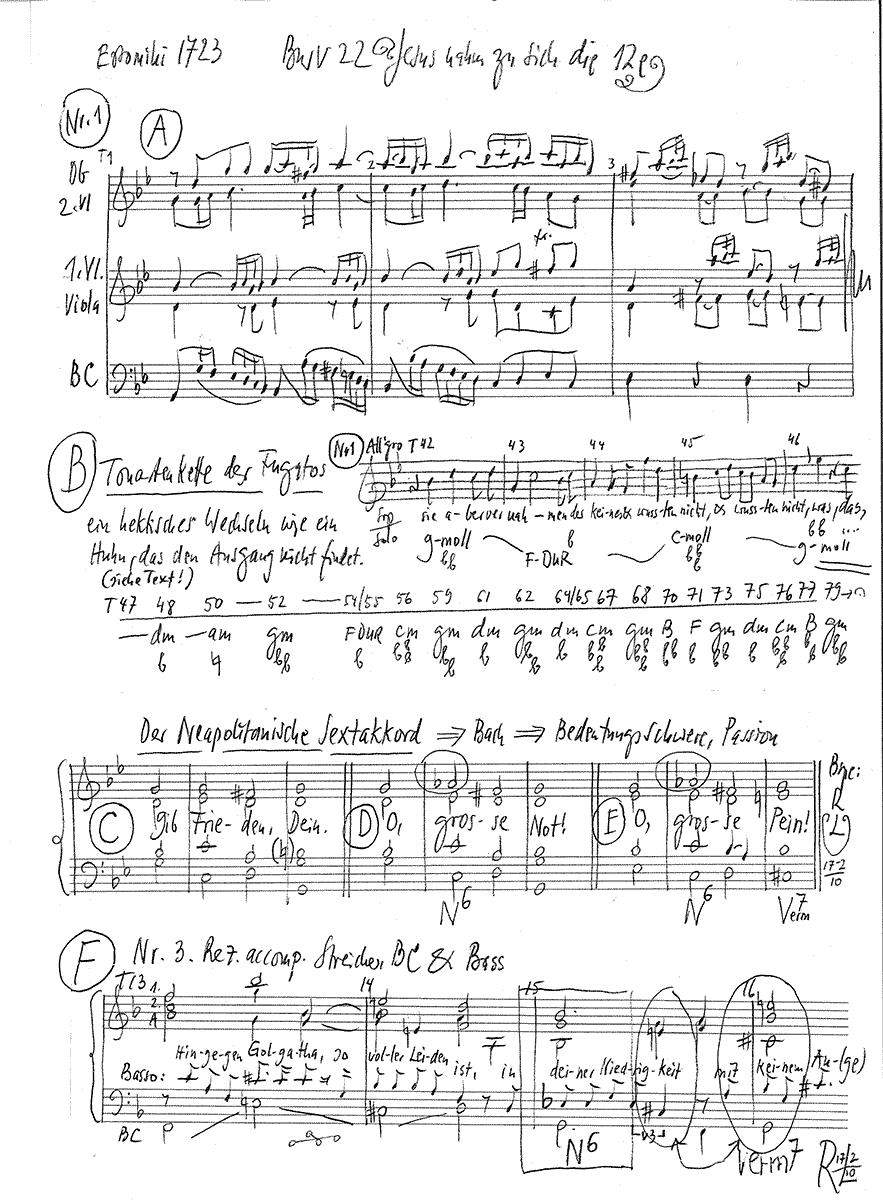 Estomihi 1723 BWV 22 Jesus nahm zu sich die 12e
Nr. 1 A
T1 2 3
Ob
2.Vl
1.Vl.
Viola
tr.
BC
B Tonartenkette des Fugatos Nr1 Allegro T 42 43 44 45 46
ein hektisches Wechseln wie ein
Huhn, das den Ausgang nicht findet.
(siehe Text!)
Sop
Solo
sie a-ber ver nah-men des kei-nes & wuss-ten nicht, & wuss-ten nicht, was, das,
g-moll F-DuR c-moll g-moll
T47 48 50 — 52 — 54/55 56 59 61 62 64/65 67 68 70 71 73 75 76 77 79
— dm — am gm F DUR cm gm dm gm dm cm gm B F gm dm cm B gm
Der Neapolitanische Sextakkord ⇒ Bach ⇒ Bedeutungsschwere, Passion
C Gib Frie-den, Dein. D O, gros-se Not! E O, gros-se Pein!
N6 N6 Verm7
17-2
10
F Nr. 3. Rez. accomp. Streicher, BC & Bass
T13 14 15 16
1.
2.
A
Hin-ge-gen Gol-ga-tha, so vol-ler Lei-den ist, in dei-ner Nied-rig-keit mit kei-nem Au-(ge)
Basso:
BC
N6 -b3- Verm7 R 17/2
10